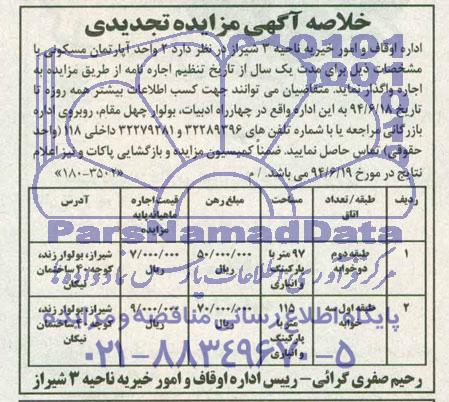 خلاصه آگهی مزایده تجدیدی
اداره اوقاف و امور خیریه ناحیه ۳ شیراز در نظر دارد ۲ واحد آپارتمان مسکونی با
مشخصات ذیل برای مدت یک سال از تاریخ تنظیم اجاره نامه از طریق مزایده به
اجاره واگذار نماید. متقاضیان می توانند جهت کسب اطلاعات بیشتر همه روزه تا
تاریخ ۹۴/۶/۱۸ به این اداره واقع در چهارراه ادبیات، بولوار چهل مقام، روبروی اداره
بازرگانی مراجعه یا با شماره تلفن های ۳۲۲۸۹۳۹۶ و ۳۲۲۷۹۲۸۱ داخلی ۱۱۸ (واحد
حقوقی) تماس حاصل نمایید. ضمناً کمیسیون مزایده و بازگشایی پاکات و نیز اعلام
نتایج در مورخ ۹۴/۶/۱۹ می باشد. / م «۱۸۰-۳۵۰۲»
ردیف | طبقه / تعداد اتاق | مساحت | مبلغ رهن | قیمت اجاره ماهیانه پایه مزایده | آدرس
۱ | طبقه دوم دوخوابه | ۹۷ متر با پارکینگ و انباری | ۵۰/۰۰۰/۰۰۰ ریال | ۷/۰۰۰/۰۰۰ ریال | شیراز، بولوار زند، کوچه ۴۰ ساختمان نیکان
۲ | طبقه اول سه خوابه | ۱۱۵ متر با پارکینگ و انباری | ۷۰/۰۰۰/۰۰۰ ریال | ۹/۰۰۰/۰۰۰ ریال | شیراز، بولوار زند، کوچه ۴۰ ساختمان نیکان
رحیم صفری گرائی – رییس اداره اوقاف و امور خیریه ناحیه ۳ شیراز
ParsNamadData
مرکز فرآوری اطلاعات پارس نماد داده ها
پایگاه اطلاع رسانی مناقصه و مزایده
۰۲۱-۸۸۳۴۹۶۷۰-۵